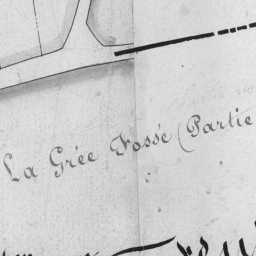 La Grée Fossé (Partie